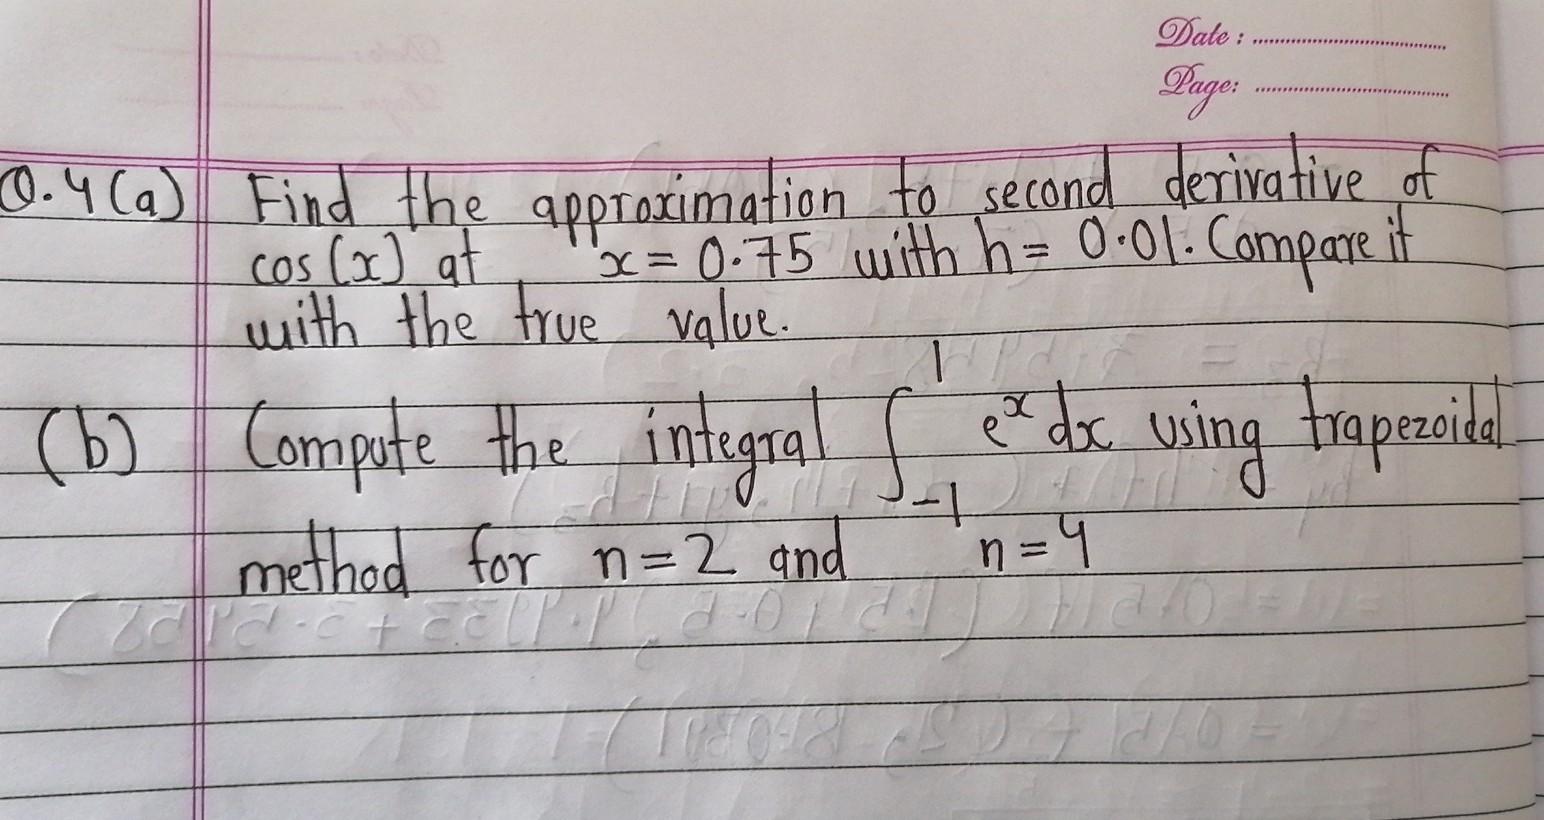 Date :
Page:
Q.4(a) Find the approximation to second derivative of
cos(x) at x = 0.75 with h = 0.01. Compare it
with the true value.
(b) Compute the integral ∫₋₁¹ eˣ dx using trapezoidal
method for n=2 and n=4